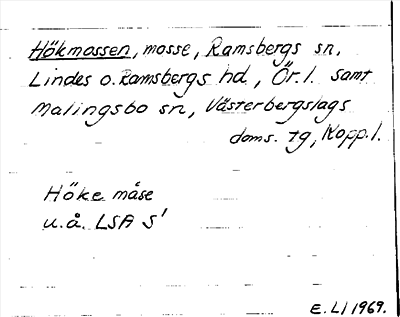 Hökmossen, mosse, Ramsbergs sn,
Lindes o. Ramsbergs hd, Ör. l. samt
Malingsbo sn, Västerbergslags
doms. tg, Kopp. l.
Höke måse
u.å. LSA S'
E. LI 1969.